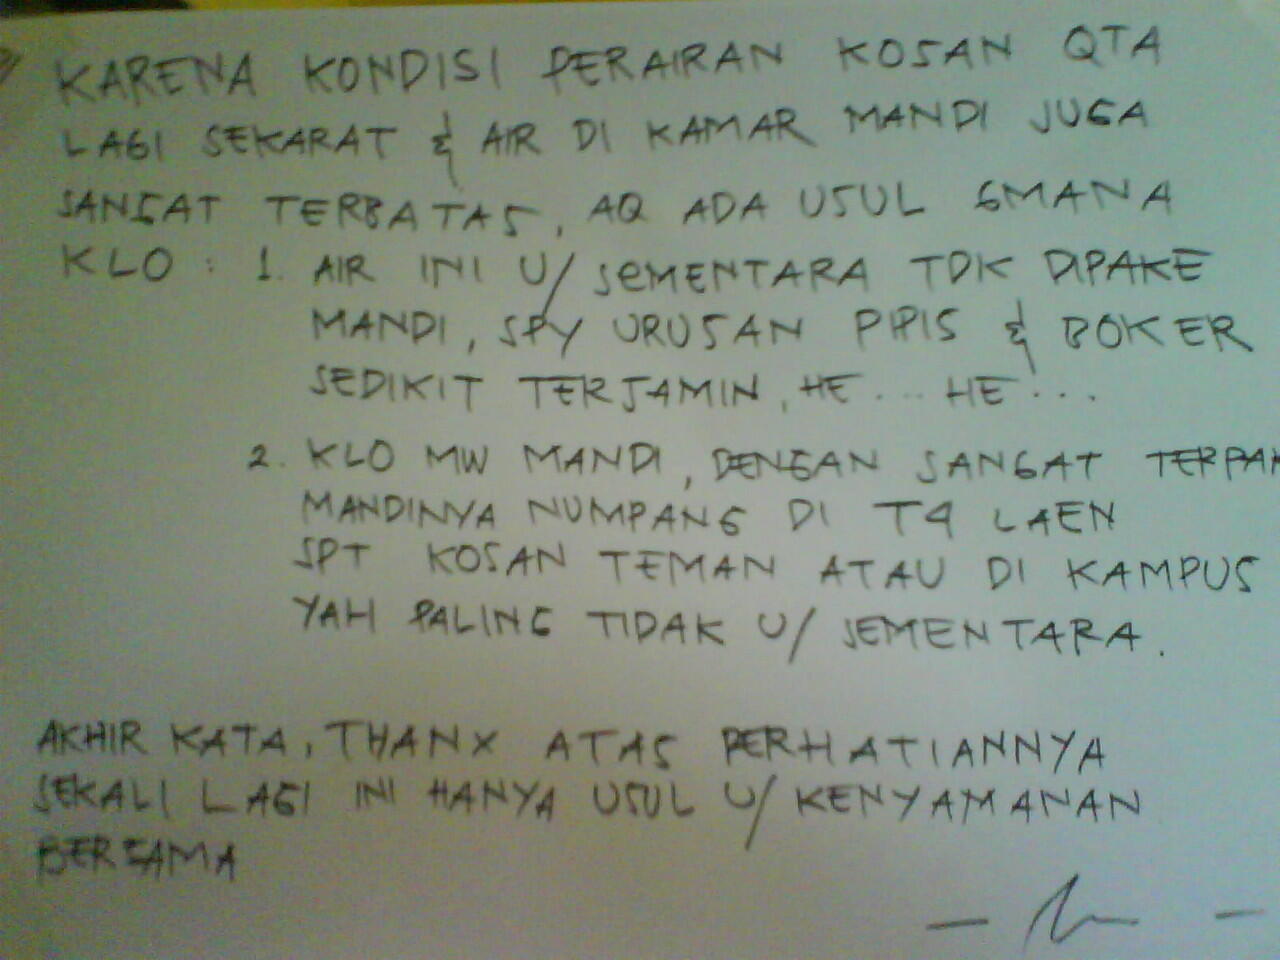 KARENA KONDISI PERAIRAN KOSAN QTA
LAGI SEKARAT & AIR DI KAMAR MANDI JUGA
SANGAT TERBATAS, AQ ADA USUL GMANA
KLO : 1. AIR INI U/ SEMENTARA TDK DIPAKE
MANDI, SPY URUSAN PIPIS & BOKER
SEDIKIT TERJAMIN, HE... HE...
2. KLO MW MANDI, DENGAN SANGAT
MANDINYA NUMPANG DI T4 LAEN
SPT KOSAN TEMAN ATAU DI KAMPUS
YAH PALING TIDAK U/ SEMENTARA.
AKHIR KATA, THANX ATAS PERHATIANNYA
SEKALI LAGI INI HANYA USUL U/ KENYAMANAN
BERSAMA